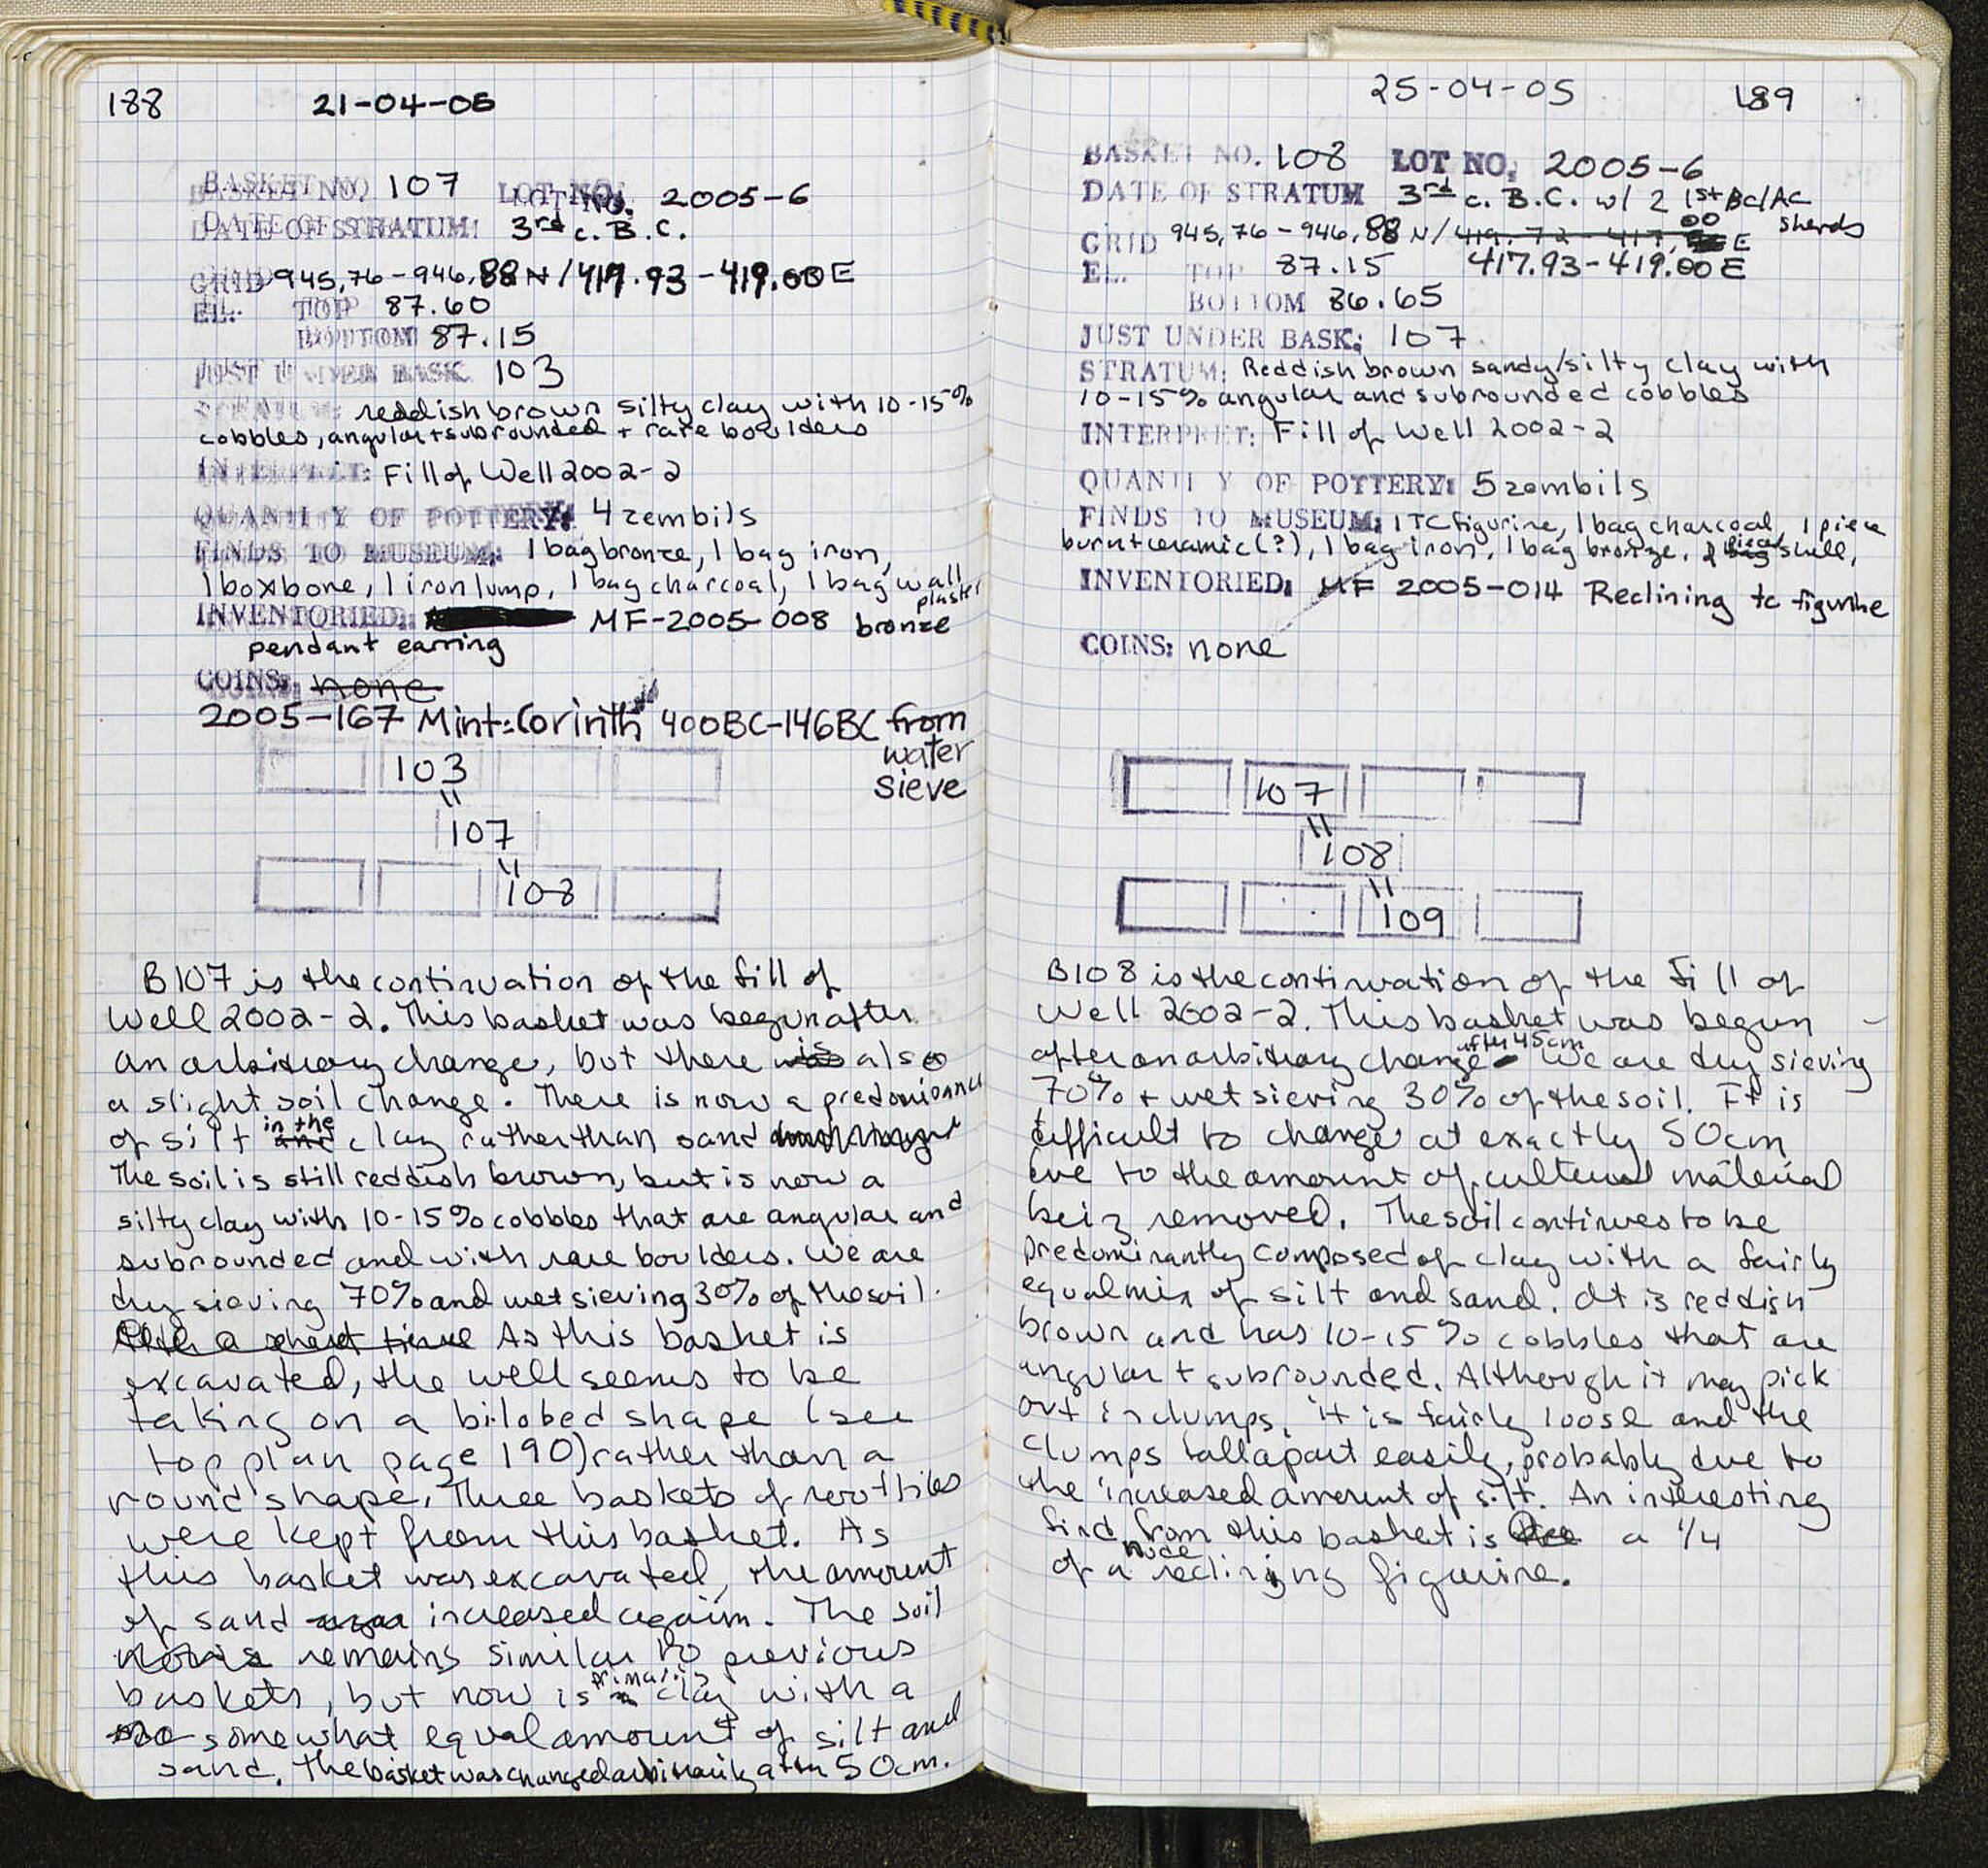 188 21-04-05
BASKET NO. 107 LOT NO. 2005-6
DATE OF STRATUM: 3rd c. B.C.
GRID 945.76-946.88 N/417.93-419.00 E
EL. TOP 87.60
BOTTOM 87.15
JUST UNDER BASK. 103
STRATUM: reddish brown silty clay with 10-15%
cobbles, angular + subrounded + rare boulders
INTERPRET: Fill of Well 2002-2
QUANTITY OF POTTERY: 4 zembils
FINDS TO MUSEUM: 1 bag bronze, 1 bag iron,
1 box bone, 1 iron lump, 1 bag charcoal, 1 bag wall
plaster
INVENTORIED: MF-2005-008 bronze
pendant earring
COINS: none
2005-167 Mint: Corinth 400BC-146BC from
water
sieve
103
107
108
B107 is the continuation of the fill of
Well 2002-2. This basket was begun after
an arbitrary change, but there was is also
a slight soil change. There is now a predominance
of silt and in the clay rather than sand
The soil is still reddish brown, but is now a
silty clay with 10-15% cobbles that are angular and
subrounded and with rare boulders. We are
dry sieving 70% and wet sieving 30% of the soil.
After a short time As this basket is
excavated, the well seems to be
taking on a bilobed shape (see
top plan page 190) rather than a
round shape. Three baskets of rooftiles
were kept from this basket. As
this basket was excavated, the amount
of sand increased again. The soil
remains similar to previous
baskets, but now is primarily clay with a
somewhat equal amount of silt and
sand. The basket was changed arbitrarily after 50cm.
25-04-05 189
BASKET NO. 108 LOT NO. 2005-6
DATE OF STRATUM 3rd c. B.C. w/ 2 1st BC/AC
sherds
GRID 945.76-946.88 N/ E
EL. TOP 87.15 417.93-419.00 E
BOTTOM 86.65
JUST UNDER BASK: 107
STRATUM: Reddish brown sandy/silty clay with
10-15% angular and subrounded cobbles
INTERPRET: Fill of Well 2002-2
QUANTITY OF POTTERY: 5 zembils
FINDS TO MUSEUM: 1 TC figurine, 1 bag charcoal, 1 piece
burnt ceramic(?), 1 bag iron, 1 bag bronze, 2 bag pieces shell,
INVENTORIED: MF 2005-014 Reclining tc figurine
COINS: none
107
108
109
B108 is the continuation of the fill of
Well 2002-2. This basket was begun
after an arbitrary change after 45cm. We are dry sieving
70% + wet sieving 30% of the soil. It is
difficult to change at exactly 50cm
due to the amount of cultural material
being removed. The soil continues to be
predominantly composed of clay with a fairly
equal mix of silt and sand. It is reddish
brown and has 10-15% cobbles that are
angular + subrounded. Although it may pick
out in clumps, it is fairly loose and the
clumps fall apart easily, probably due to
the increased amount of silt. An interesting
find from this basket is a 1/4
of a nude reclining figurine.